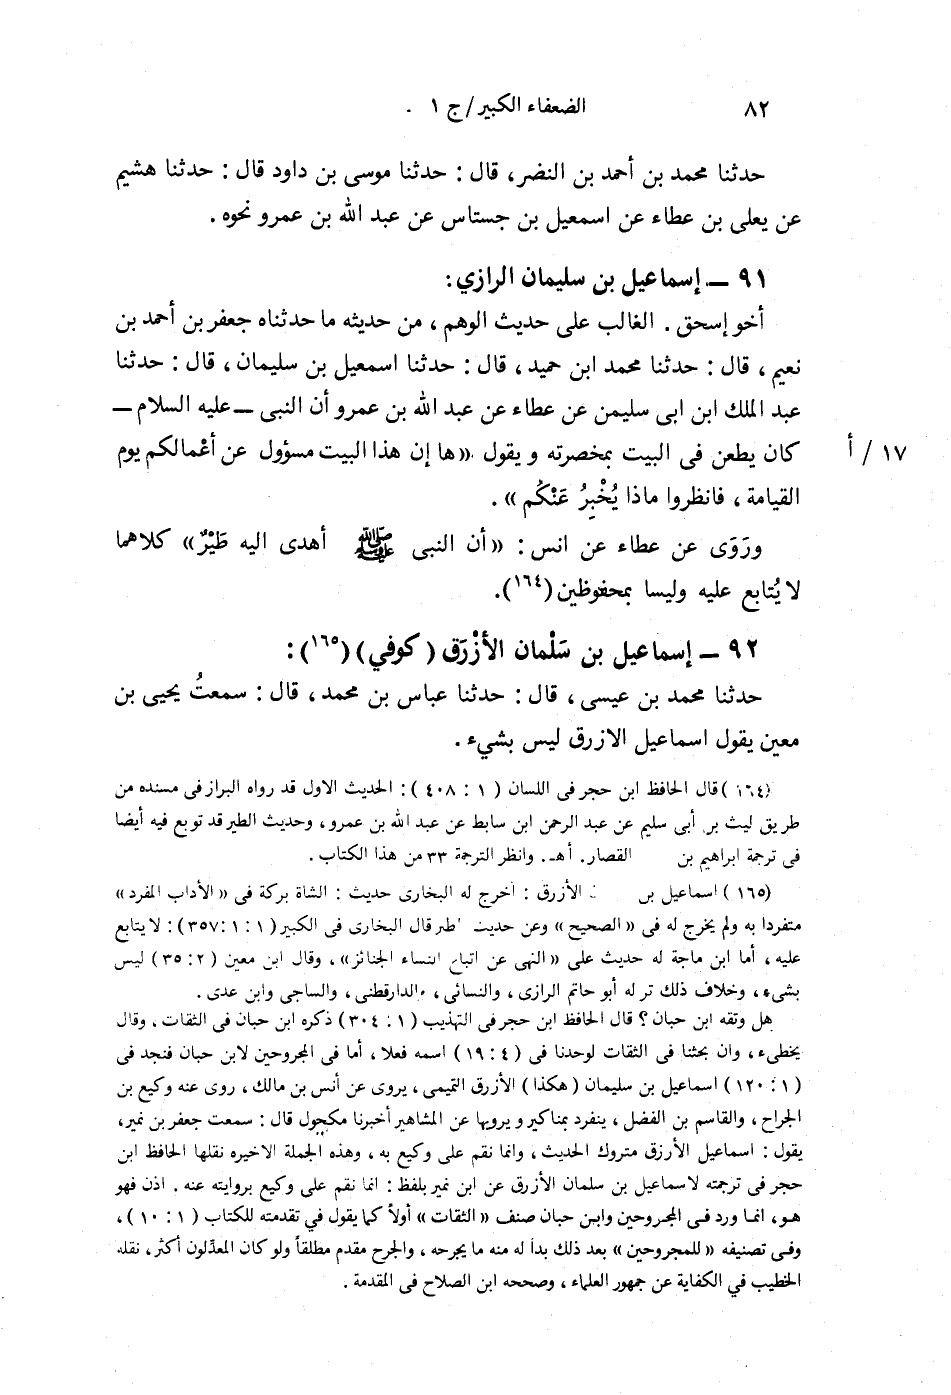 ٨٢ الضعفاء الكبير/ج ١
حدثنا محمد بن أحمد بن النضر، قال: حدثنا موسى بن داود قال: حدثنا هشيم
عن يعلى بن عطاء عن اسمعيل بن جستاس عن عبد الله بن عمرو نحوه.
٩١ ـ إسماعيل بن سليمان الرازي:
أخو إسحق. الغالب على حديث الوهم، من حديثه ما حدثناه جعفر بن أحمد بن
نعيم، قال: حدثنا محمد ابن حميد، قال: حدثنا اسمعيل بن سليمان، قال: حدثنا
عبد الملك ابن ابى سليمن عن عطاء عن عبد الله بن عمرو أن النبى ـ عليه السلام ـ
كان يطعن فى البيت بمخصرته ويقول «ها إن هذا البيت مسؤول عن أعْمالكم يوم
١٧ / أ
القيامة، فانظروا ماذا يُخْبِرُ عَنْكُم».
ورَوَى عن عطاء عن انس: «أن النبى ﷺ أهدى اليه طَيْرٌ» كلاهما
لا يُتابع عليه وليسا بمحفوظين(١٦٤).
٩٢ ـ إسماعيل بن سَلْمان الأزْرَق (كوفي)(١٦٥):
حدثنا محمد بن عيسى، قال: حدثنا عباس بن محمد، قال: سمعتُ يحيى بن
معين يقول اسماعيل الازرق ليس بشيء.
(١٦٤) قال الحافظ ابن حجر فى اللسان (١: ٤٠٨): الحديث الاول قد رواه البزاز فى مسنده من
طريق ليث بن أبى سليم عن عبد الرحمن ابن سابط عن عبد الله بن عمرو، وحديث الطير قد توبع فيه أيضا
فى ترجمة ابراهيم بن القصار. أهـ. وانظر الترجمة ٣٣ من هذا الكتاب.
(١٦٥) اسماعيل بن الأزرق: أخرج له البخارى حديث: الشاة بركة فى «الأداب المفرد»
متفردا به ولم يخرج له فى «الصحيح» وعن حديث الطير قال البخارى فى الكبير (١: ١: ٣٥٧): لا يتابع
عليه، أما ابن ماجة له حديث على «النهى عن اتباع النساء الجنائز»، وقال ابن معين (٢: ٣٥) ليس
بشيء، وخلاف ذلك تركه أبو حاتم الرازى، والنسائى، والدارقطنى، والساجى وابن عدى.
هل وثقه ابن حبان؟ قال الحافظ ابن حجر فى التهذيب (١: ٣٠٤) ذكره ابن حبان فى الثقات. وقال
يخطىء، وان بحثنا فى الثقات لوحدنا فى (٤: ١٩) اسمه فعلا، أما فى المجروحين لابن حبان فنجد فى
(١: ١٢٠) اسماعيل بن سليمان (هكذا) الأزرق التميمى، يروى عن أنس بن مالك، روى عنه وكيع بن
الجراح، والقاسم بن الفضل، ينفرد بمناكير ويرويها عن المشاهير أخبرنا مكحول قال: سمعت جعفر بن نمير،
يقول: اسماعيل الأرزق متروك الحديث، وانما نقم على وكيع به، وهذه الجملة الاخيره نقلها الحافظ ابن
حجر فى ترجمته لاسماعيل بن سلمان الأزرق عن ابن نمير بلفظ: انما نقم على وكيع بروايته عنه. اذن فهو
هو، انما ورد فى المجروحين وابن حبان صنف «الثقات» أولاً كما يقول في تقدمته للكتاب (١: ١٠)،
وفى تصنيفه «للمجروحين» بعد ذلك بدأ له منه ما يجرحه، والجرح مقدم مطلقاً ولو كان المعدّلون أكثر، نقله
الخطيب في الكفاية عن جمهور العلماء، وصححه ابن الصلاح فى المقدمة.